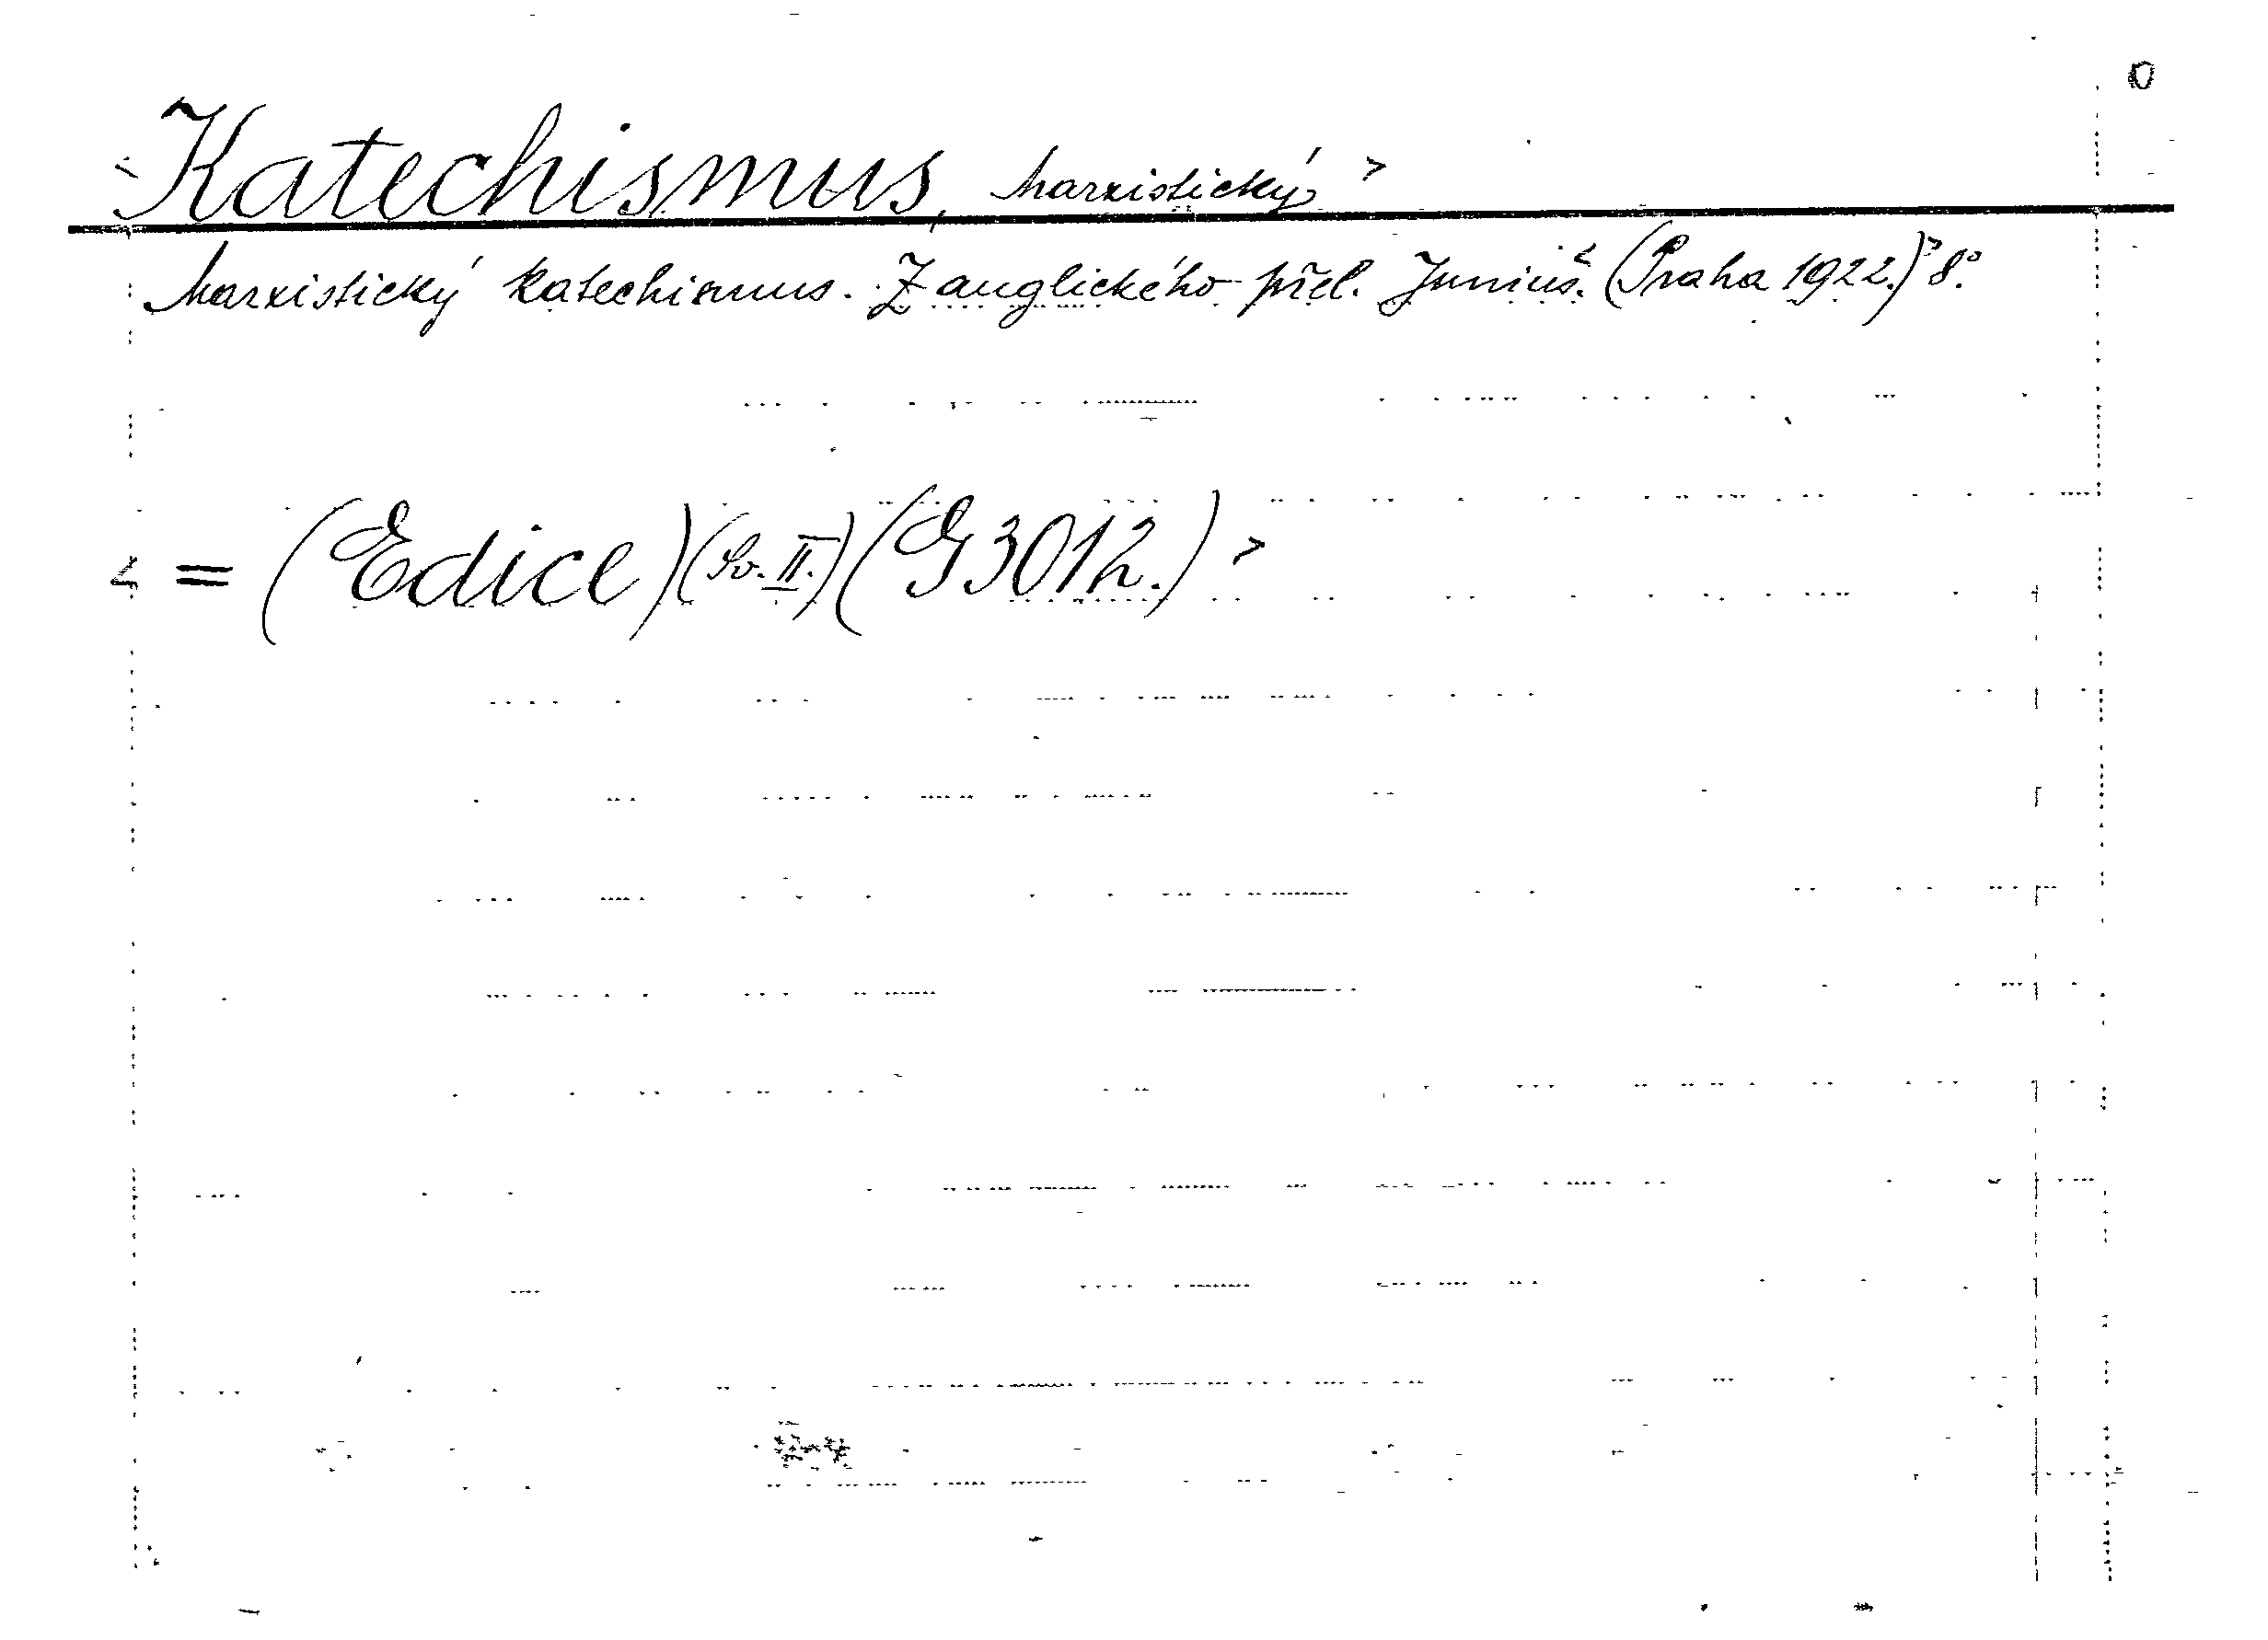 Katechismus, Marxistický >
Marxistický katechismus. Z anglického přel. Juniuš. (Praha 1922.) 8°.
= (Edice) (Sv. II.) (G 3012.) >